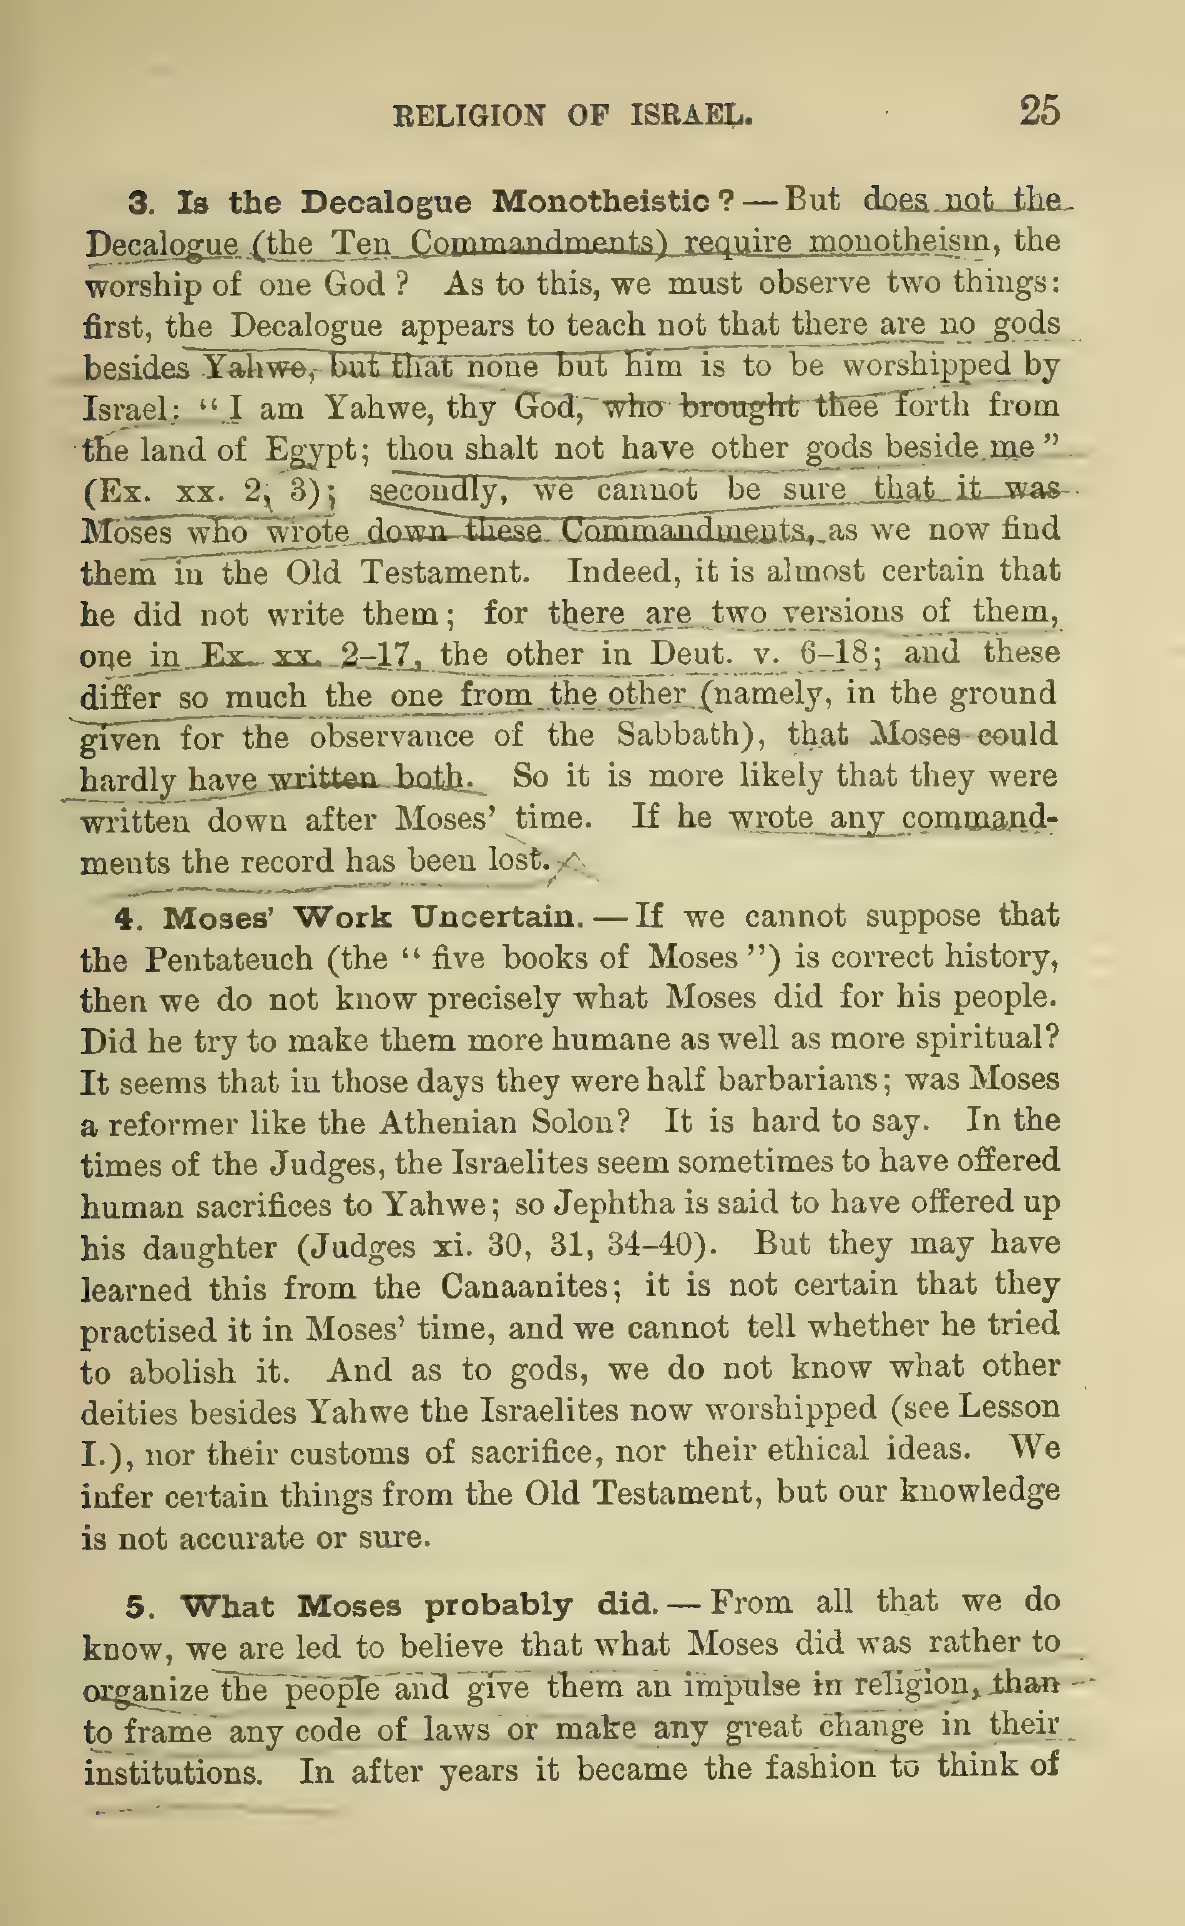 RELIGION OF ISRAEL. 25
3. Is the Decalogue Monotheistic? — But does not the
Decalogue (the Ten Commandments) require monotheism, the
worship of one God? As to this, we must observe two things:
first, the Decalogue appears to teach not that there are no gods
besides Yahwe, but that none but him is to be worshipped by
Israel: “I am Yahwe, thy God, who brought thee forth from
the land of Egypt; thou shalt not have other gods beside me”
(Ex. xx. 2, 3); secondly, we cannot be sure that it was
Moses who wrote down these Commandments, as we now find
them in the Old Testament. Indeed, it is almost certain that
he did not write them; for there are two versions of them,
one in Ex. xx. 2–17, the other in Deut. v. 6–18; and these
differ so much the one from the other (namely, in the ground
given for the observance of the Sabbath), that Moses could
hardly have written both. So it is more likely that they were
written down after Moses’ time. If he wrote any command-
ments the record has been lost.
4. Moses’ Work Uncertain. — If we cannot suppose that
the Pentateuch (the “five books of Moses”) is correct history,
then we do not know precisely what Moses did for his people.
Did he try to make them more humane as well as more spiritual?
It seems that in those days they were half barbarians; was Moses
a reformer like the Athenian Solon? It is hard to say. In the
times of the Judges, the Israelites seem sometimes to have offered
human sacrifices to Yahwe; so Jephtha is said to have offered up
his daughter (Judges xi. 30, 31, 34–40). But they may have
learned this from the Canaanites; it is not certain that they
practised it in Moses’ time, and we cannot tell whether he tried
to abolish it. And as to gods, we do not know what other
deities besides Yahwe the Israelites now worshipped (see Lesson
I.), nor their customs of sacrifice, nor their ethical ideas. We
infer certain things from the Old Testament, but our knowledge
is not accurate or sure.
5. What Moses probably did. — From all that we do
know, we are led to believe that what Moses did was rather to
organize the people and give them an impulse in religion, than
to frame any code of laws or make any great change in their
institutions. In after years it became the fashion to think of